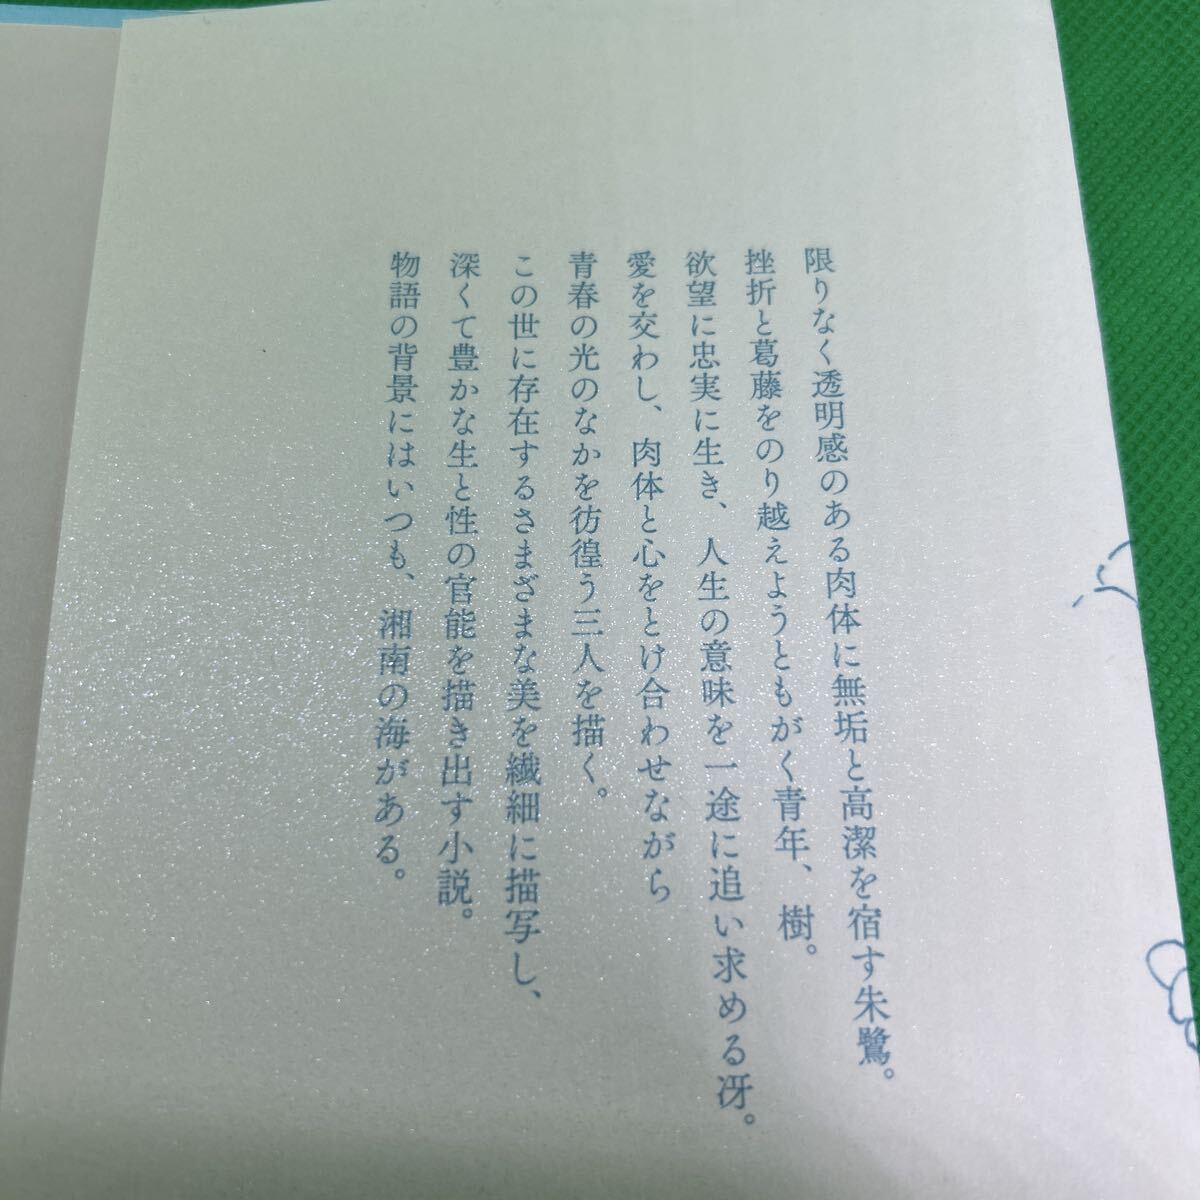 限りなく透明感のある肉体に無垢と高潔を宿す朱鷺。
挫折と葛藤をのり越えようともがく青年、樹。
欲望に忠実に生き、人生の意味を一途に追い求める冴。
愛を交わし、肉体と心をとけ合わせながら
青春の光のなかを彷徨う三人を描く。
この世に存在するさまざまな美を繊細に描写し、
深くて豊かな生と性の官能を描き出す小説。
物語の背景にはいつも、湘南の海がある。